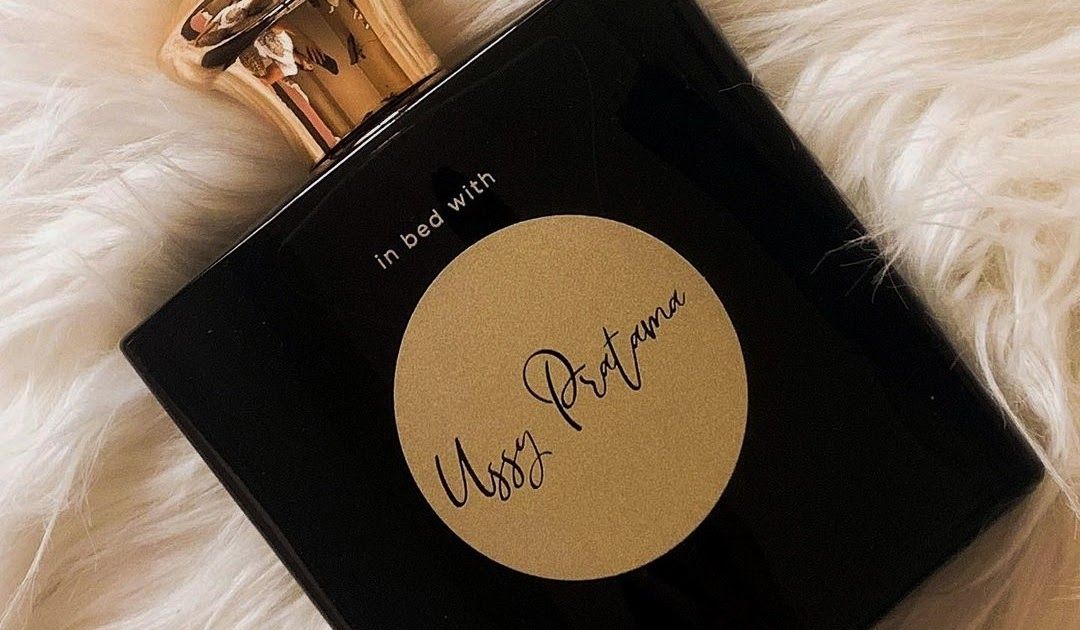 in bed with
Ussy Pratama